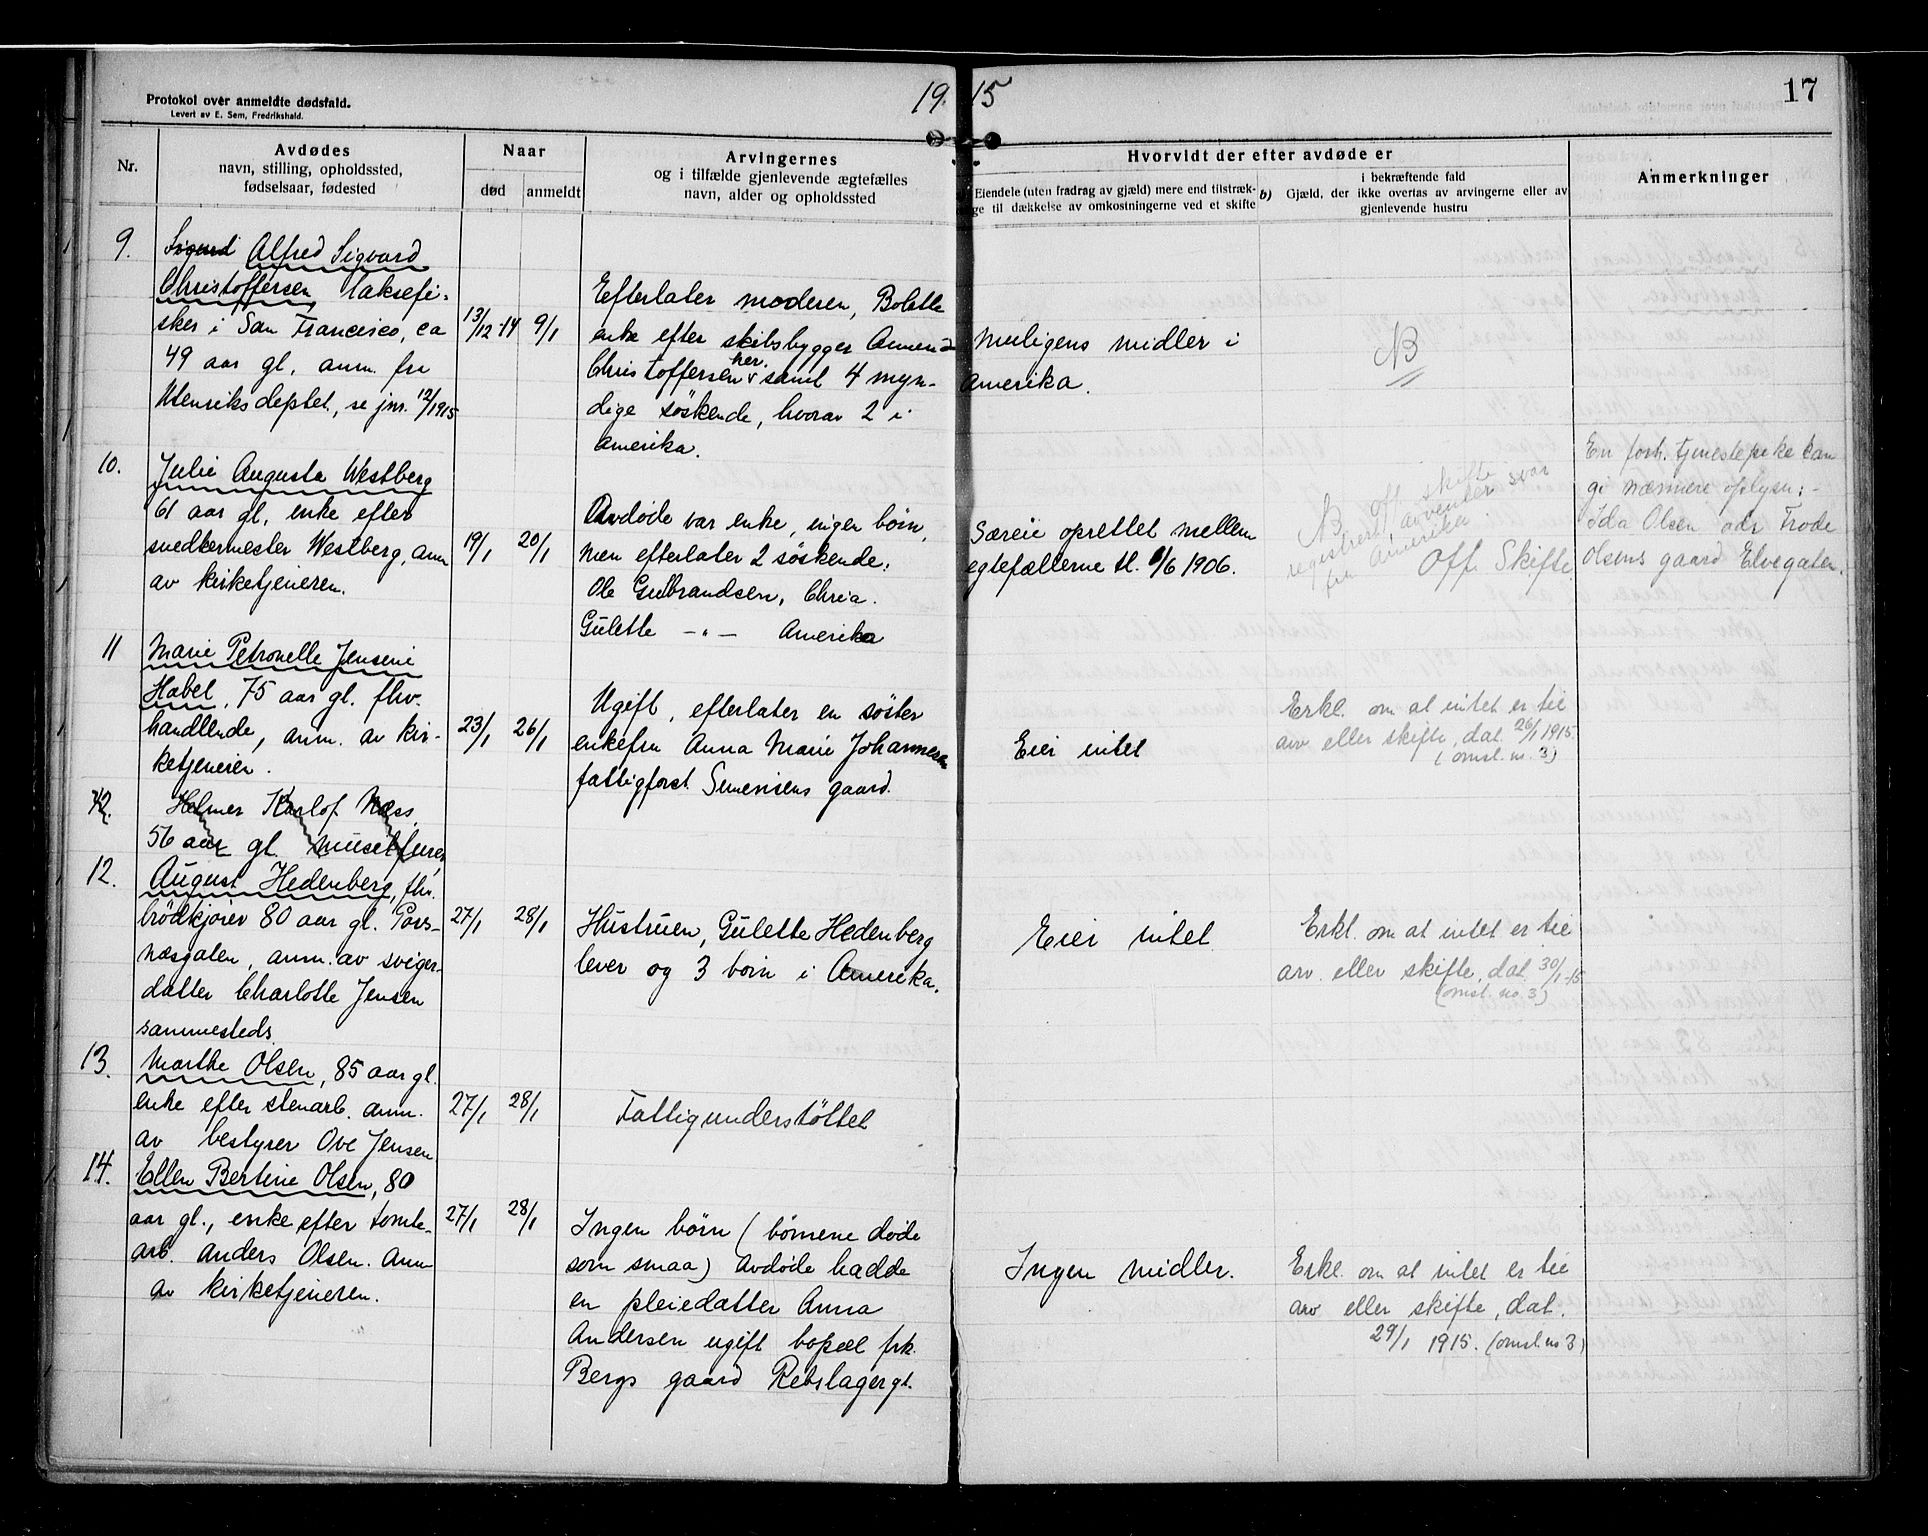 Protokol over anmeldte dødsfald.
Levert av E. Sem, Fredrikshald.
1915
17
Nr.
Avdødes
navn, stilling, opholdssted,
fødselsaar, fødested
Naar
død
anmeldt
Arvingernes
og i tilfælde gjenlevende ægtefælles
navn, alder og opholdssted
Hvorvidt der efter avdøde er
Eiendele (uten fradrag av gjæld) mere end tilstræk-
ge til dækkelse av omkostningerne ved et skifte
b)
i bekræftende fald
Gjæld, der ikke overtas av arvingerne eller av
gjenlevende hustru
Anmerkninger
9.
Sigurd Alfred Sigvard
Christoffersen, laksefi-
sker i San Francisco, ca
49 aar gl, anm. fra
Utenriksdeptet, se jnr. 12/1915
13/12-14
9/1
Efterlater moderen, Bolette
enke efter skibsbygger
Christoffersen her. samt 4 myn-
dige søskende, hvorav 2 i
Amerika.
Muligens midler i
Amerika.
NB
10.
Julie Augusta Westberg
61 aar gl, enke efter
snedkermester Westberg, anm
av kirketjeneren.
19/1
20/1
Avdøde var enke, ingen børn,
men efterlater 2 søskende:
Ole Gulbrandsen, Chria.
Gulette -"- Amerika
Særeie oprettet mellem
egtefællerne tl. 8/6 1906.
NB off. skifte
registrert avventer svar
fra Amerika.
Off. Skifte.
En forh. tjenestepike kan
gi nærmere oplysn:-
Ida Olsen adr Frode
Olsens gaard Elvegaten.
11
Marie Petronelle Jensine
Habel, 75 aar gl. fhv.
handlende, anm. av kir-
ketjener.
23/1
26/1
Ugift, efterlater en søster
enkefru Anna Marie Johannesen
fattigforst. Simensens gaard.
Eier intet
Erkl. om at intet er til
arv eller skifte, dat. 26/1 1915
(omst. no. 3)
12.
Helmer Karlof Næss,
56 aar gl.
12.
August Hedenberg, fhv.
brødkjører 80 aar gl. Pors-
næsgaten, anm. av sviger-
datter Charlotte Jensen
sammesteds.
27/1
28/1
Hustruen, Gulette Hedenberg
lever og 3 børn i Amerika.
Eier intet
Erkl. om at intet er til
arv eller skifte, dat. 30/1-15
(omst. no. 3)
13.
Marthe Olsen, 85 aar gl.
enke efter stenarb. anm.
av bestyrer Ove Jensen
27/1
28/1
Fattigunderstöttet
14.
Ellen Bertine Olsen, 80
aar gl., enke efter tomte-
arb. Anders Olsen. Anm
av kirketjeneren.
27/1
28/1
Ingen børn (børnene døde
som smaa) Avdøde hadde
en pleiedatter Anna
Andersen ugift bopæl frk.
Bergs gaard Rebslagergt.
Ingen midler.
Erkl. om at intet er til
arv eller skifte, dat.
29/1 1915. (omst. no 3)